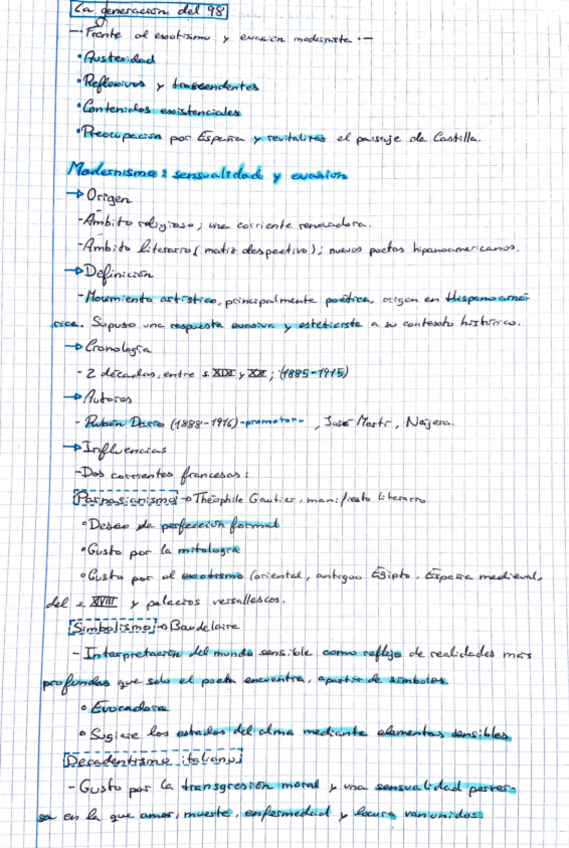 La generación del 98
- Frente al exotismo y evasión modernista -
• Austeridad
• Reflexivos y trascendentes
• Contenidos existenciales
• Preocupación por España y revitaliza el paisaje de Castilla.
Modernismo: sensualidad y evasión
→ Origen
- Ámbito religioso; una corriente renovadora.
- Ámbito literario (matiz despectivo); nuevos poetas hipanoamericanos.
→ Definición
- Movimiento artístico, principalmente poética, origen en Hispanoamé-
rica. Supuso una respuesta evasiva y esteticista a su contexto histórico.
→ Cronología
- 2 décadas, entre s. XIX y XX; (1885-1915)
→ Autores
- Rubén Darío (1888-1916) -promotor- , José Martí, Nájera.
→ Influencias
- Dos corrientes francesas:
Parnasianismo → Théophile Gautier, manifiesto literario
• Deseo de perfección formal
• Gusto por la mitología
• Gusto por el exotismo (oriental, antiguo Egipto, España medieval,
del s. XVIII y palacios versallescos.
Simbolismo → Baudelaire
- Interpretación del mundo sensible como reflejo de realidades más
profundas que solo el poeta encuentra, a partir de símbolos
• Evocadora
• Sugiere los estados del alma mediante elementos sensibles
Decadentismo italiano
- Gusto por la transgresión moral y una sensualidad perver-
sa en la que amor, muerte, enfermedad y locura van unidos